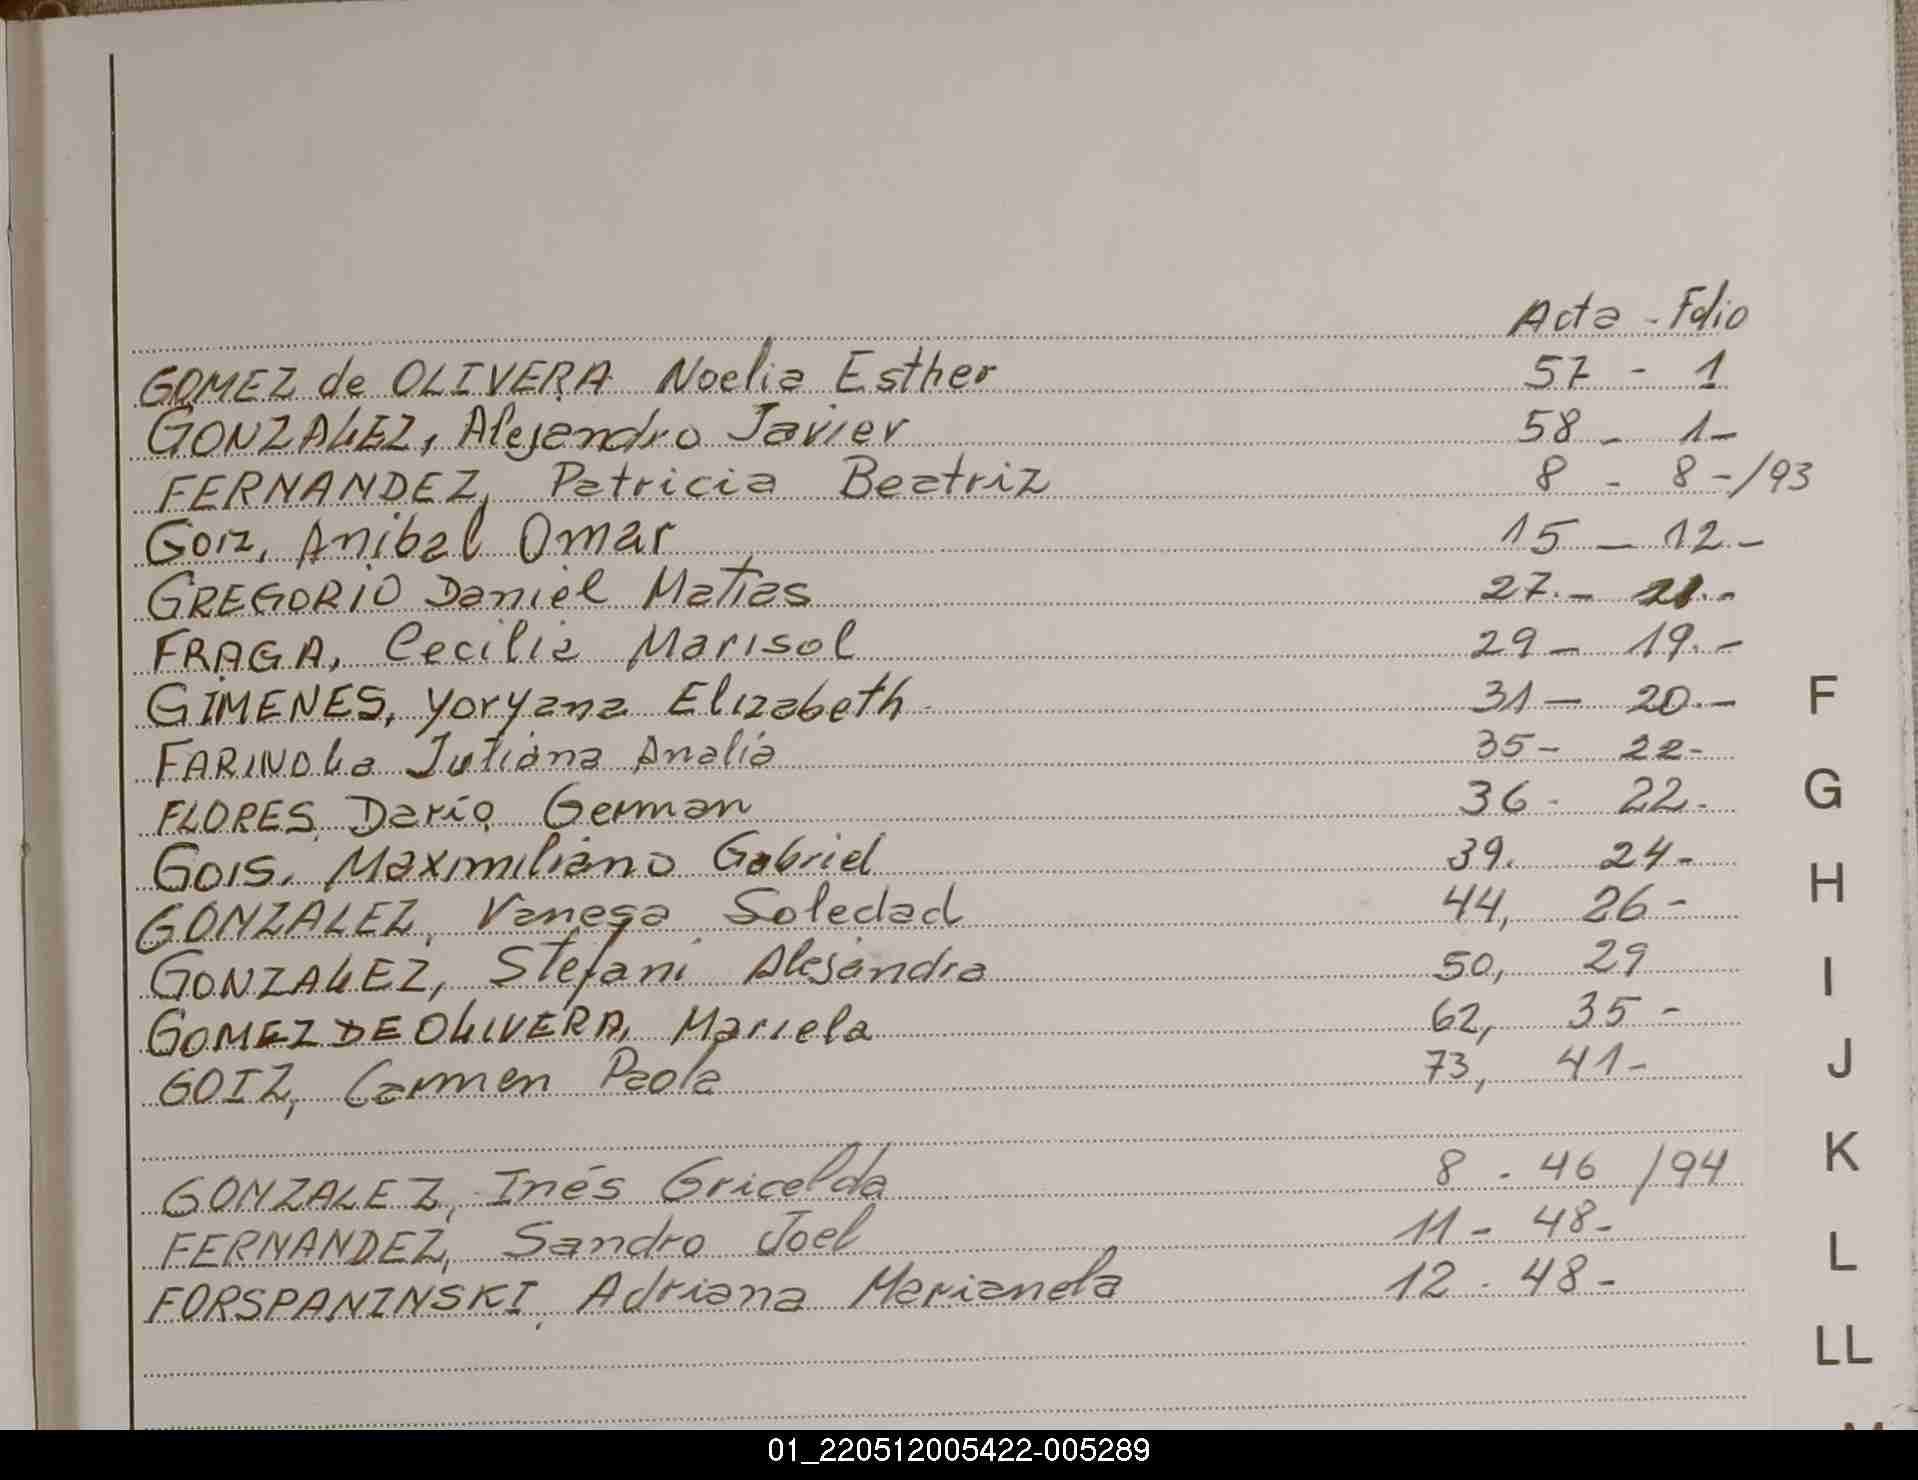 Acta - Folio
GOMEZ de OLIVERA Noelia Esther 57 - 1
GONZALEZ, Alejandro Javier 58 - 1-
FERNANDEZ, Patricia Beatriz 8 - 8-/93
GOIZ, Anibal Omar 15 - 12.-
GREGORIO Daniel Matias 27.- 21.-
FRAGA, Cecilia Marisol 29 - 19.-
GIMENES, Yoryana Elizabeth 31 - 20.-
FARINOLa Juliana Analia 35 - 22-
FLORES, Darío German 36 - 22.-
GOIS, Maximiliano Gabriel 39. 24-
GONZALEZ, Vanesa Soledad 44, 26-
GONZALEZ, Stefani Alejandra 50, 29
GOMEZ DE OLIVERA, Mariela 62, 35-
GOIZ, Carmen Paola 73, 41-
GONZALEZ, Inés Gricelda 8 - 46 /94
FERNANDEZ, Sandro Joel 11 - 48-
FORSPANINSKI, Adriana Marianela 12 - 48-
F
G
H
I
J
K
L
LL
01_220512005422-005289